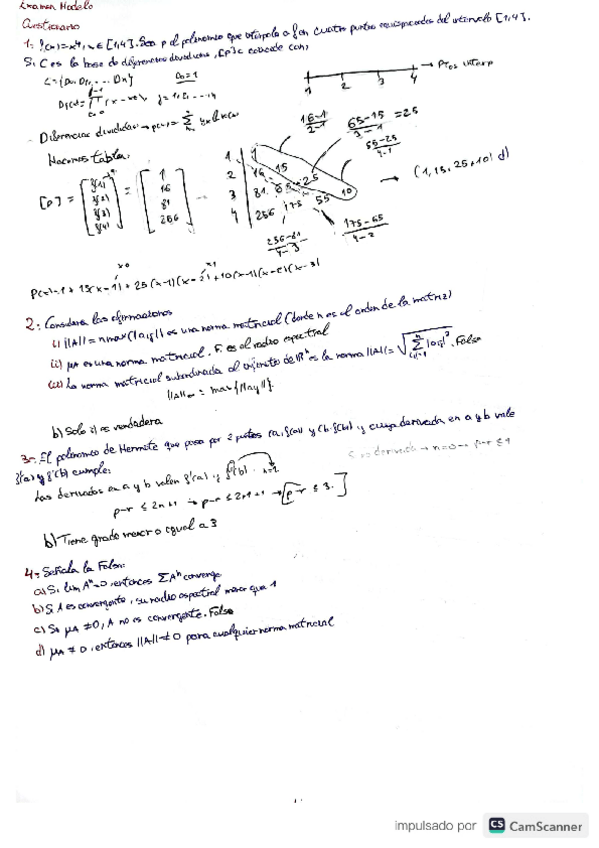 Examen Modelo
Cuestionario
1: f(x)=x⁴, x ∈ [1,4]. Sea p el polinomio que interpola a f en cuatro puntos equiespaciados del intervalo [1,4].
Si C es la base de diferencias divididas, [p]c coincide con;
C={D0, D1, ... Dn} D0=1
j=1,2,...,n
→ Ptos interp
1 2 3 4
- Diferencias divididas →
Hacemos tabla:
16-1
2-1
65-15
3-1
=25
55-25
4-1
[P] = [f(1) f(2) f(3) f(4)] = [1 16 81 256]
1 1
2 16 15
3 81 65 25
4 256 175 55 10
→ (1, 15, 25, 10) d)
256-81
4-3
175-65
4-2
x0 x1
P(x)=1+15(x-1)+25(x-1)(x-2)+10(x-1)(x-2)(x-3)
2: Considera las afirmaciones
i) ||A||= n max{|aij|} es una norma matricial (donde n es el orden de la matriz)
ii) μA es una norma matricial. F. es el radio espectral
iii) La norma matricial subordinada al infinito de ℝⁿ es la norma ||A||= . Falso
||A||∞ = max{||aij||}.
b) Solo i) es verdadera
3- El polinomio de Hermite que pasa por 2 puntos (a, f(a)) y (b, f(b)) y cuya derivada en a y b vale
f'(a) y f'(b) cumple:
Las derivadas en a y b valen f'(a) y f'(b). n=1
p-r ≤ 2n+1 → p-r ≤ 2·1+1 → [p-r ≤ 3.]
b) Tiene grado menor o igual a 3
4- Señala la Falsa:
a) Si lim Aⁿ=0, entonces ΣAⁿ converge
b) Si A es convergente, su radio espectral menor que 1
c) Si μA ≠ 0, A no es convergente. Falso
d) μA ≠ 0, entonces ||A|| ≠ 0 para cualquier norma matricial
impulsado por CS CamScanner